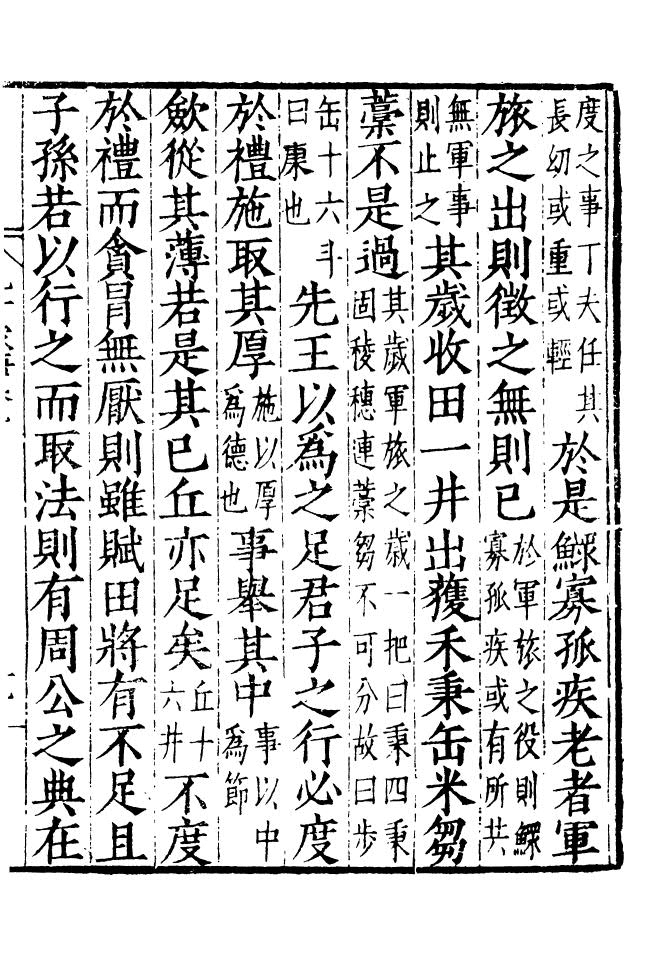 度之事丁夫任其長幼或重或輕於是鰥寡孤疾老者軍
旅之出則徵之無則已於軍旅之役則鰥寡孤疾或有所共
無軍事則止之其歲收田一井出獲禾秉缶米芻
藁不是過其歲軍旅之歲一把曰秉四秉固稜穗連藁芻不可分故曰步
缶十六斗曰康也先王以爲之足君子之行必度
於禮施取其厚施以厚爲德也事舉其中事以中爲節
歛從其薄若是其已丘亦足矣丘十六井不度
於禮而貪冒無厭則雖賦田將有不足且
子孫若以行之而取法則有周公之典在